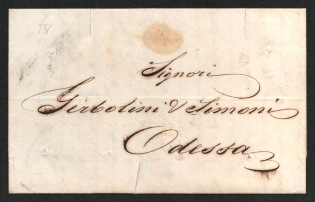 78
Signori
Gerbolini & Simoni
Odessa